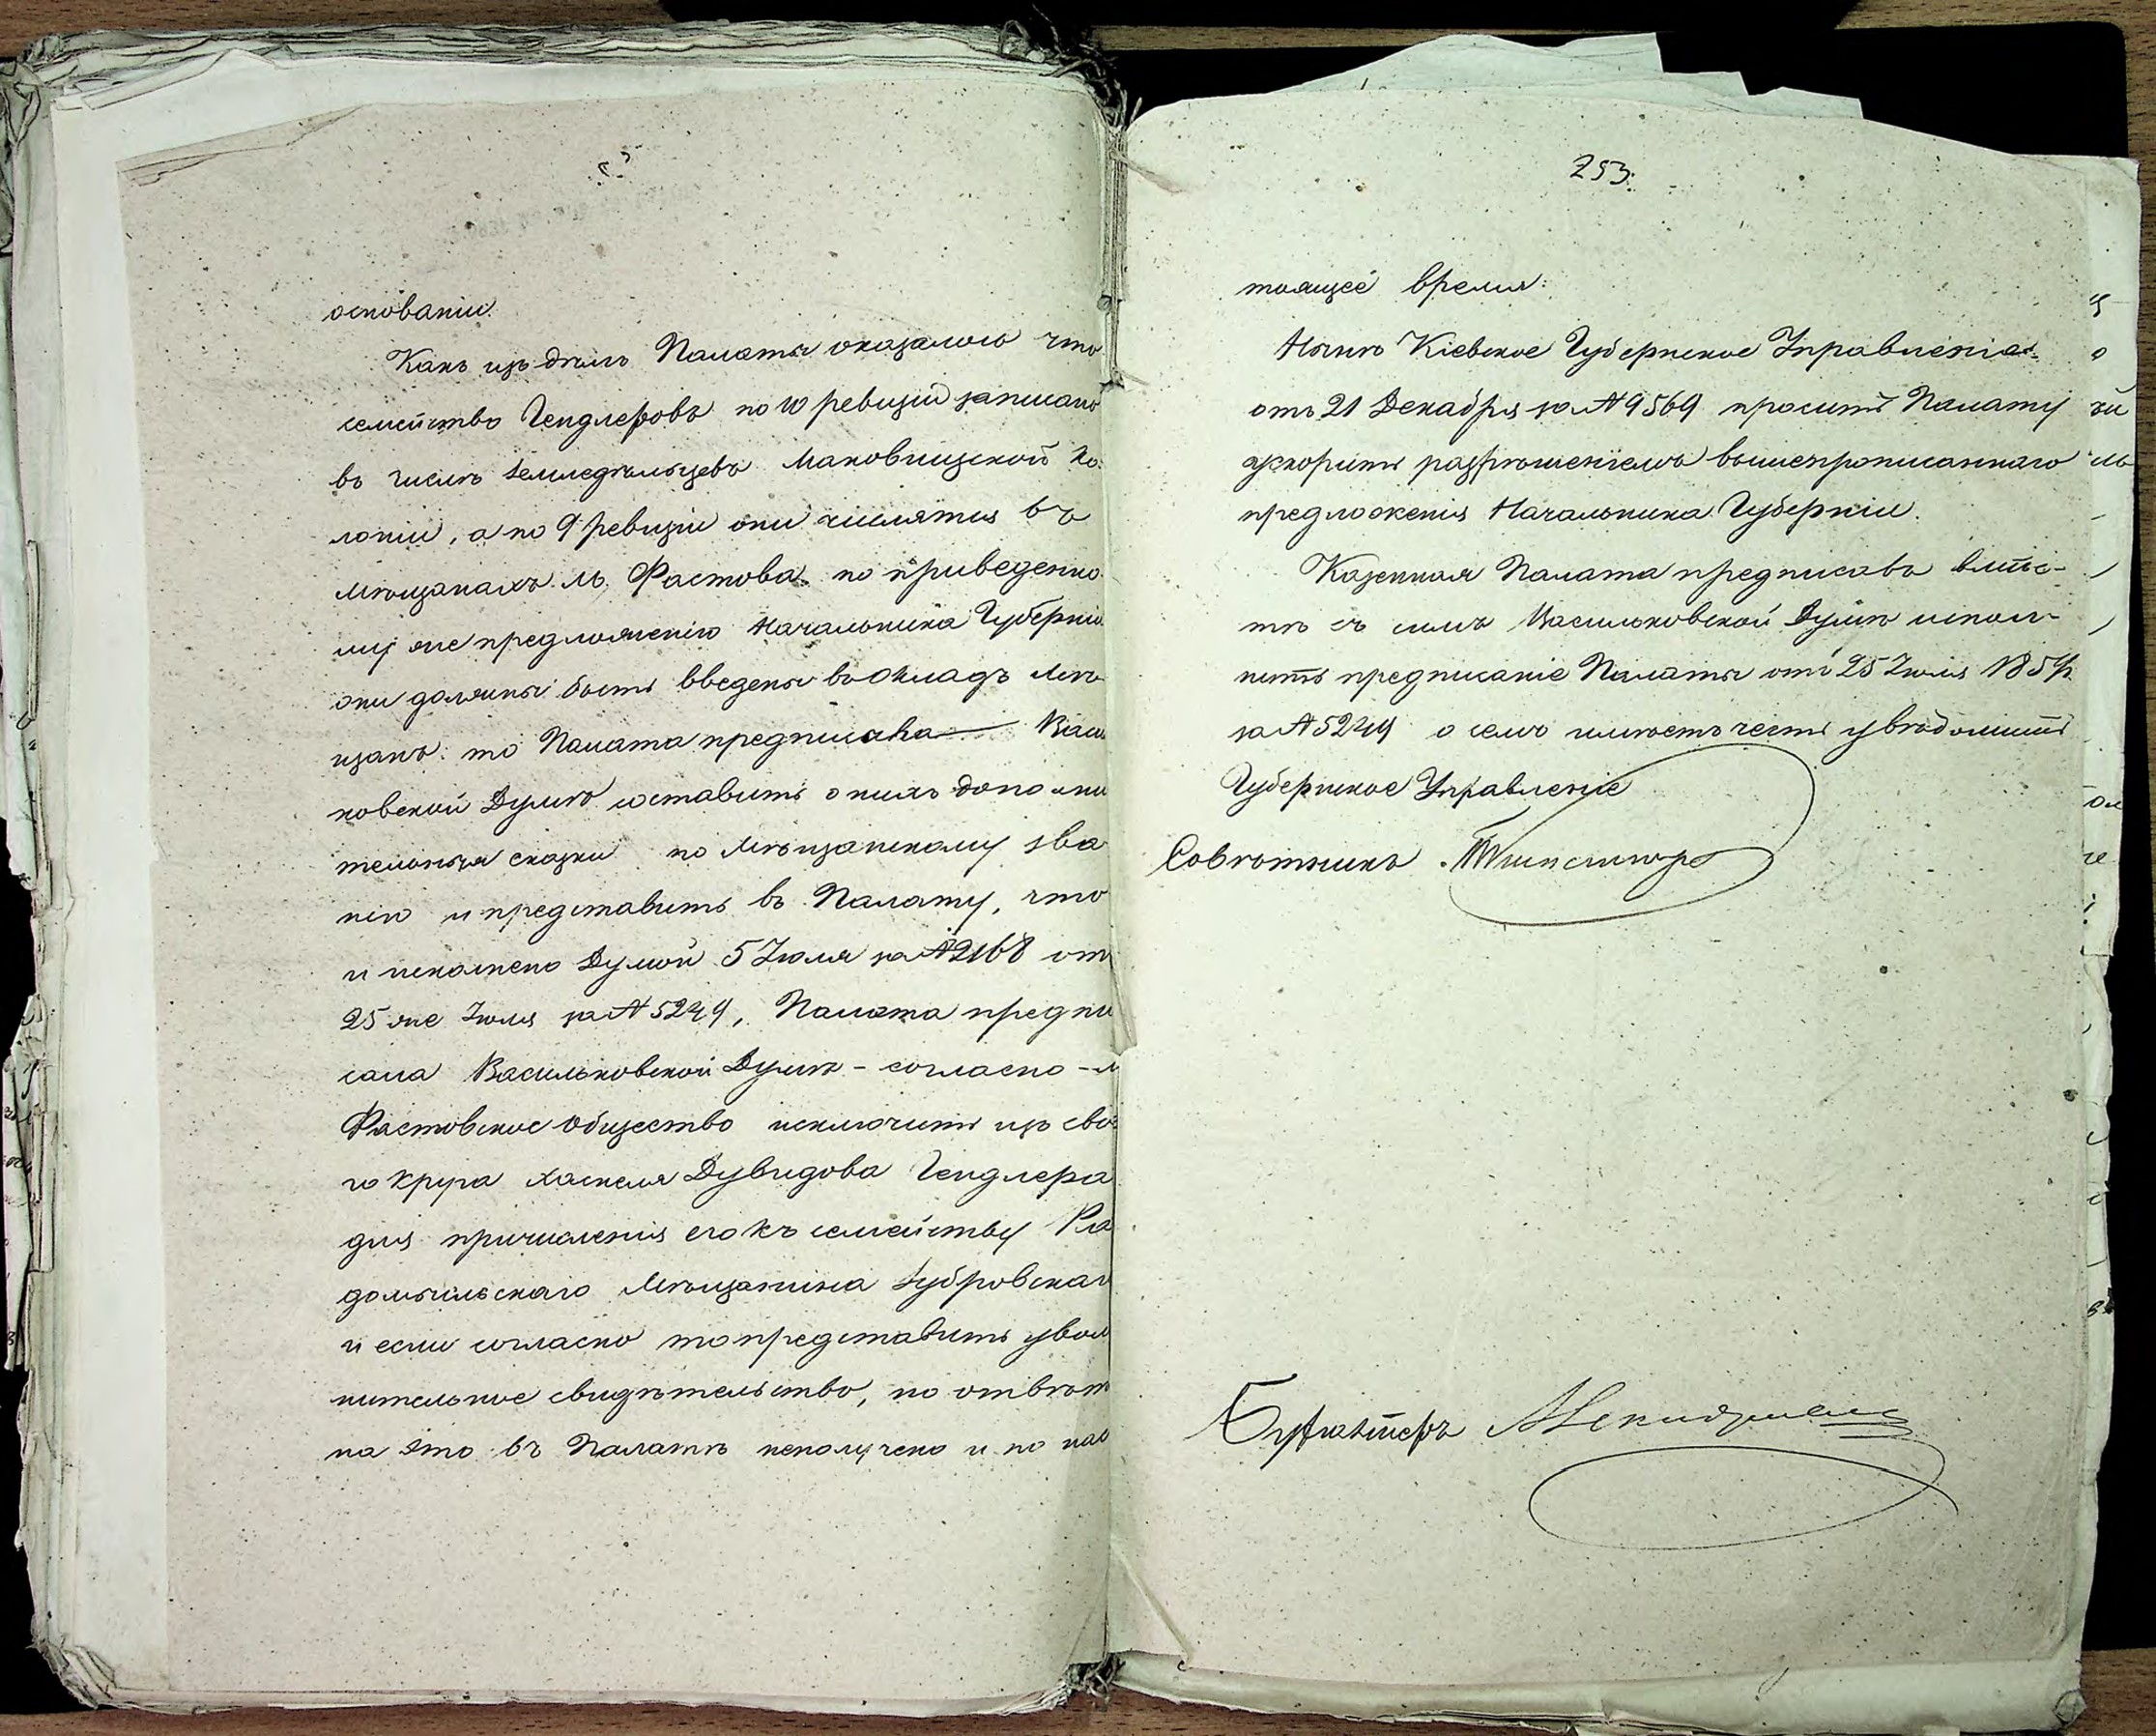 основаніи.
Какъ изъ дѣлъ Палаты оказалось что
семейство Гендлеровъ по 10 ревизіи записано
въ числѣ земледѣльцевъ Маковищской Ко-
лоніи, а по 9 ревизіи они числятся въ
мѣщанахъ м. Фастова по приведенно
му же предложенію Начальника Губерніи
они должны быть введены въ окладъ мѣ
щанъ. то Палата предписала Василь
ковской Думѣ составить о нихъ дополни
тельныя сказки по мѣщанскому зва
нію и представить въ Палату, что
и исполнено Думой 5 Іюля за № 2168 от
25 же Іюля за № 5249, Палата предпи
сала Васильковской Думѣ - согласно - л
Фастовское Общество исключить изъ свое
го круга Хаскеля Дувидова Гендлера
для причисленія его къ семейству Ра
домысльскаго Мѣщанина Зубровскаго
и если согласно то представить уволь
нительное свидѣтельство, но отвѣта
на это въ Палатѣ неполучено и по нас
253.
тоящее время.
Нынѣ Кіевское Губернское Управленіе
отъ 21 Декабря за № 9569 проситъ Палату
ускорить разрѣшеніемъ вышепрописаннаго
предложенія Начальника Губерніи.
Казенная Палата предписавъ вмѣс-
тѣ съ симъ Васильковской Думѣ испол-
нить предписаніе Палаты отъ 25 Іюля 185
за № 5249 о семъ имѣетъ честь увѣдомить
Губернское Управленіе
Совѣтникъ
Бухгалтеръ